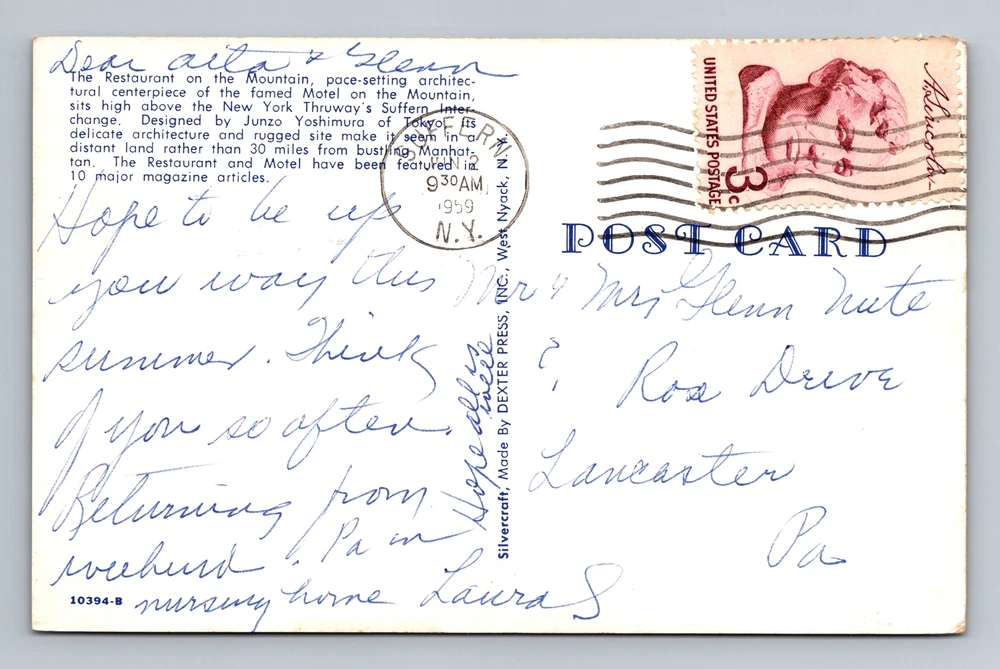 Dear Arta & Glenn
The Restaurant on the Mountain, pace-setting architec-
tural centerpiece of the famed Motel on the Mountain,
sits high above the New York Thruway's Suffern Inter-
change. Designed by Junzo Yoshimura of Tokyo, its
delicate architecture and rugged site make it seem in a
distant land rather than 30 miles from bustling Manhat-
tan. The Restaurant and Motel have been featured in
10 major magazine articles.
Hope to be up
your way this
summer. Think
of you so often.
Returning from
weekend. Pa in
nursing home Laura S
Hope all is
well
10394-B
Silvercraft, Made By DEXTER PRESS, INC., West Nyack, N.Y.
SUFFERN
JUN 2
9 30 AM
1959
N.Y.
A. Lincoln
UNITED STATES POSTAGE
3c
POST CARD
Mr & Mrs Glenn Nute
? Rose Drive
Lancaster
Pa